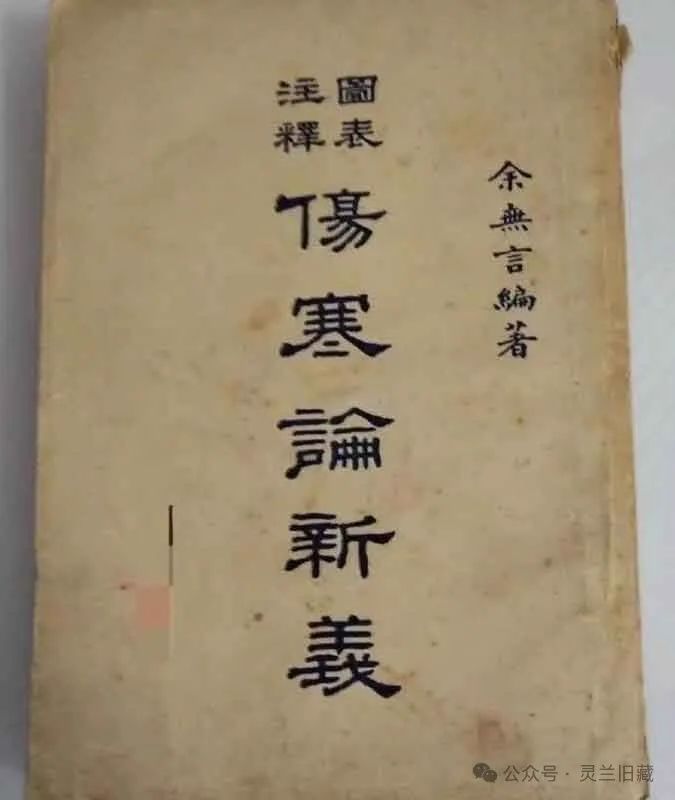 余無言編著
圖表
注釋
傷寒論新義
公众号·灵兰旧藏